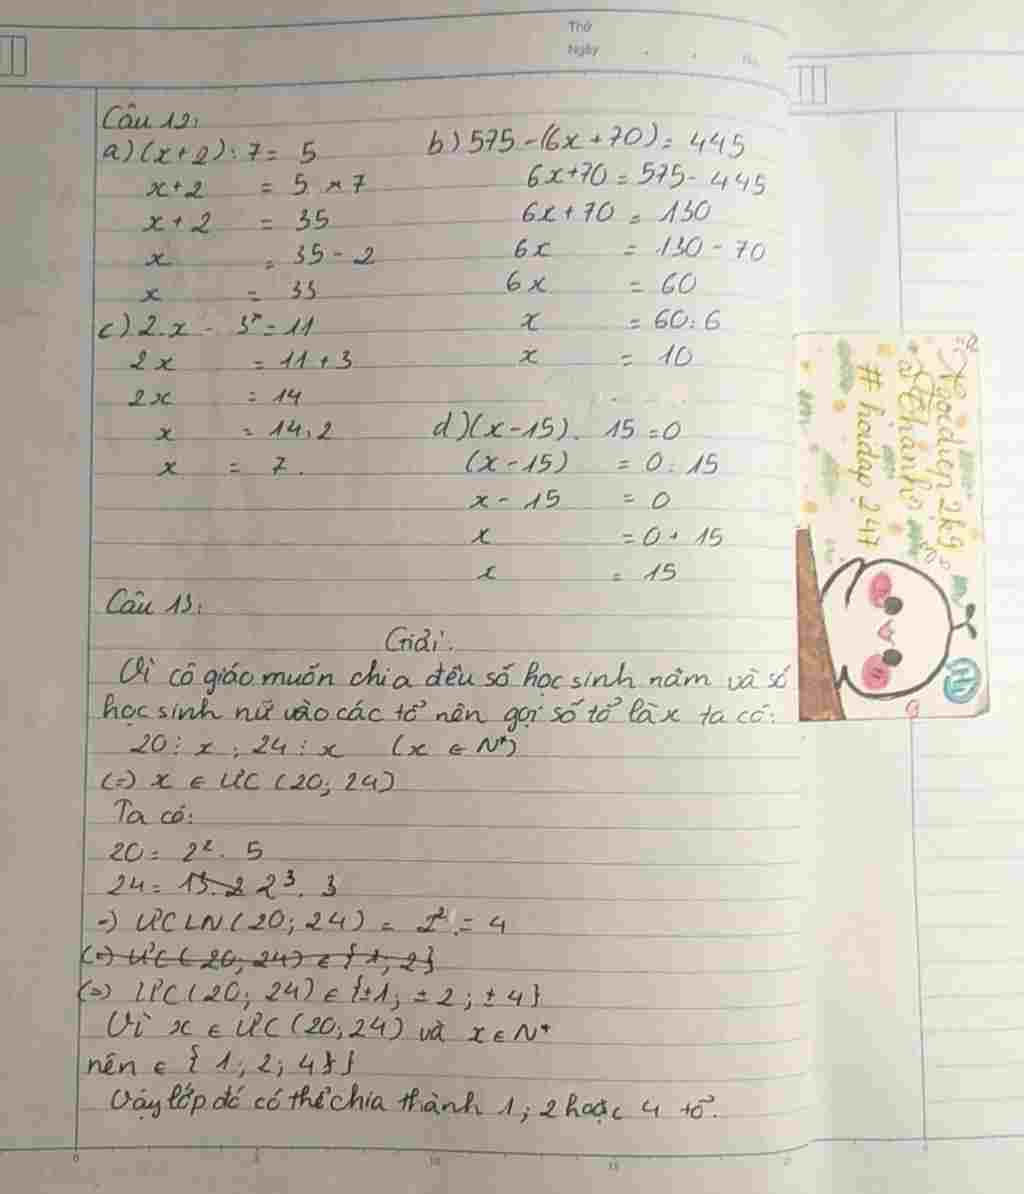 Thứ
Ngày
Câu 12:
a) (x+2) : 7 = 5
x+2 = 5 × 7
x + 2 = 35
x = 35 - 2
x = 33
c) 2.x - 3 = 11
2x = 11 + 3
2x = 14
x = 14:2
x = 7.
b) 575 - (6x + 70) = 445
6x+70 = 575 - 445
6x + 70 = 130
6x = 130 - 70
6x = 60
x = 60:6
x = 10
d) (x-15). 15 = 0
(x-15) = 0 : 15
x - 15 = 0
x = 0 + 15
x = 15
Câu 13:
Giải:
Vì cô giáo muốn chia đều số học sinh nam và số
học sinh nữ vào các tổ nên gọi số tổ là x ta có:
20 ⋮ x ; 24 ⋮ x (x ∈ N*)
(=) x ∈ ƯC (20; 24)
Ta có:
20 = 2². 5
24 = 2³. 3
=) ƯCLN (20; 24) = 2² = 4
(=) ƯC (20; 24) ∈ {1; 2}
(=) ƯC (20; 24) ∈ {±1; ±2; ±4}
Vì x ∈ ƯC (20; 24) và x ∈ N*
nên ∈ {1; 2; 4}}
Vậy lớp đó có thể chia thành 1; 2 hoặc 4 tổ.
Ngocdiep2k9
# hoidap247